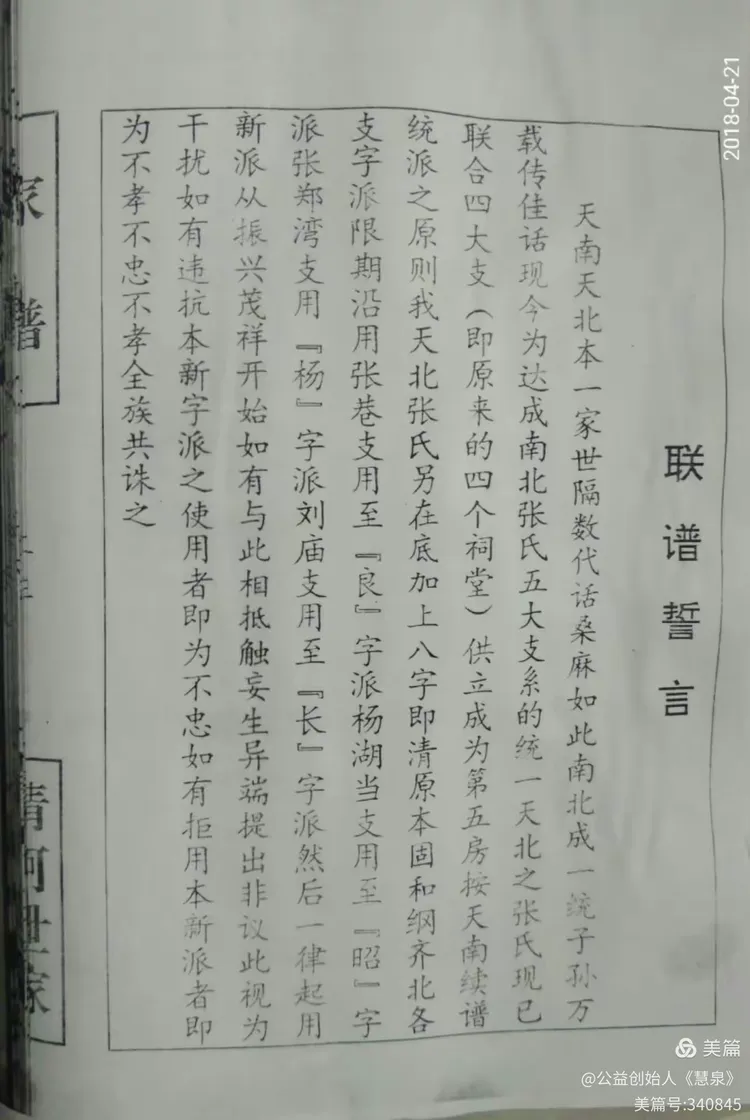 联谱誓言
天南天北本一家世隔数代话桑麻如此南北成一统子孙万
载传佳话现今为达成南北张氏五大支系的统一天北之张氏现已
联合四大支（即原来的四个祠堂）供立成为第五房按天南续谱
统派之原则我天北张氏另在底加上八字即清原本固和纲齐北各
支字派限期沿用张巷支用至『良』字派杨湖当支用至『昭』字
派张郑湾支用『杨』字派刘庙支用至『长』字派然后一律起用
新派从振兴茂祥开始如有与此相抵触妄生异端提出非议此视为
干扰如有违抗本新字派之使用者即为不忠如有拒用本新派者即
为不孝不忠不孝全族共诛之
家谱
清河世家
2018-04-21
美篇
@公益创始人《慧泉》
美篇号:340845